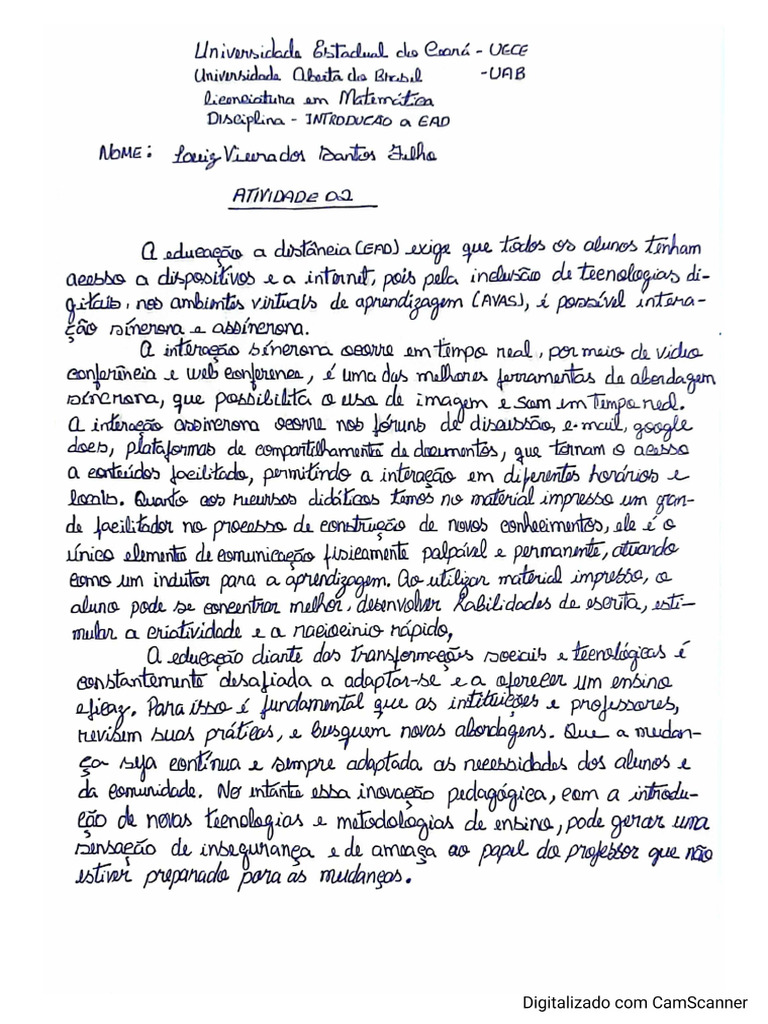 Universidade Estadual do Ceará - UECE
Universidade Aberta do Brasil - UAB
Licenciatura em Matemática
Disciplina - INTRODUCAO a EAD
NOME: Luiz Vieira dos Santos Filho
ATIVIDADE 02
A educação a distância (EAD) exige que todos os alunos tenham
acesso a dispositivos e a internet, pois pela inclusão de tecnologias di-
gitais, nos ambientes virtuais de aprendizagem (AVAS), é possível intera-
ção síncrona e assíncrona.
A interação síncrona ocorre em tempo real, por meio de video
conferência e web conference, é uma das melhores ferramentas de abordagem
síncrona, que possibilita o uso de imagem e som em tempo real.
A interação assincrona ocorre nos fóruns de discussão, e-mail, google
docs, plataformas de compartilhamento de documentos, que tornam o acesso
a conteúdos facilitado, permitindo a interação em diferentes horários e
locais. Quanto aos recursos didáticos temos no material impresso um gran-
de facilitador no processo de construção de novos conhecimentos, ele é o
único elemento de comunicação fisicamente palpável e permanente, atuando
como um indutor para a aprendizagem. Ao utilizar material impresso, o
aluno pode se concentrar melhor, desenvolver habilidades de escrita, esti-
mular a criatividade e a raciocinio rápido,
A educação diante das transformações sociais e tecnológicas é
constantemente desafiada a adaptar-se e a oferecer um ensino
eficaz. Para isso é fundamental que as instituições e professores,
revisem suas práticas, e busquem novas abordagens. Que a mudan-
ça seja contínua e sempre adaptada as necessidades dos alunos e
da comunidade. No intante essa inovação pedagógica, com a introdu-
ção de novas tecnologias e metodologias de ensino, pode gerar uma
sensação de insegurança e de ameaça ao papel do professor que não
estiver preparado para as mudanças.
Digitalizado com CamScanner